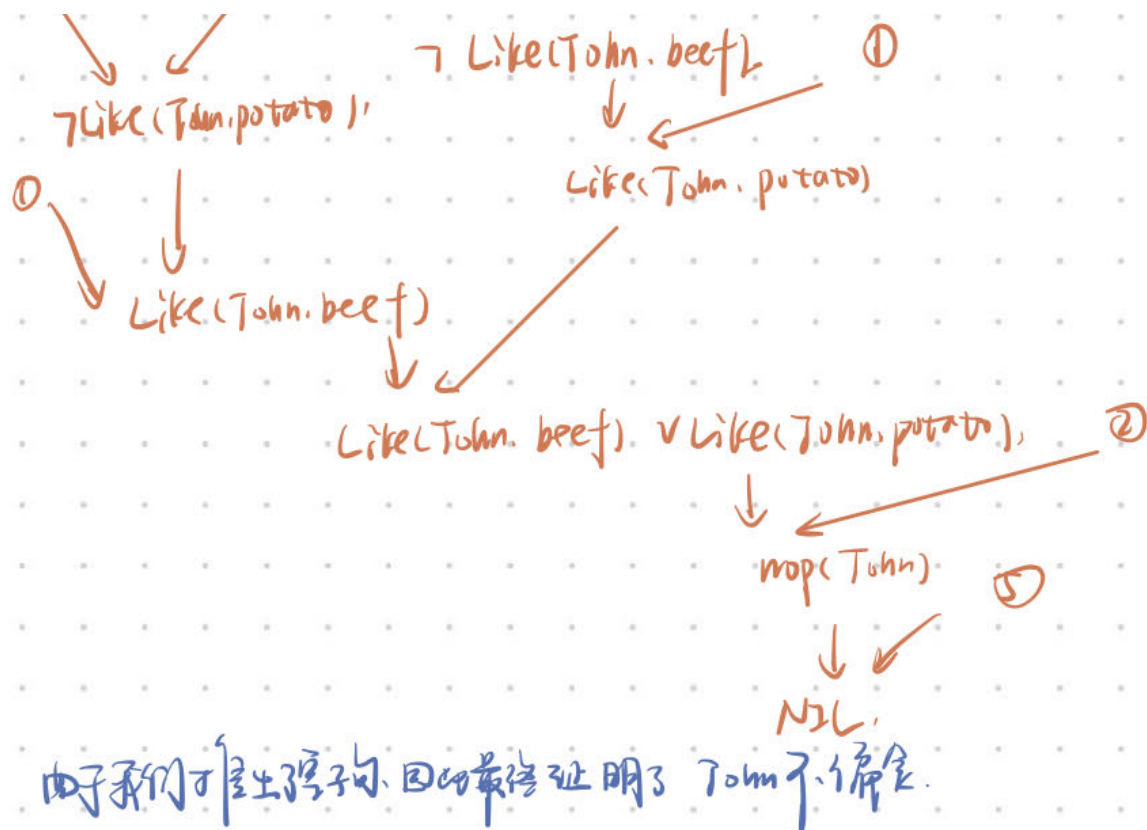 ¬Like(John.beef). ①
¬Like(John.potato).
Like(John.potato)
①
Like(John.beef)
Like(John.beef) ∨ Like(John.potato). ②
nop(John) ⑤
NIL.
由于我们推出了空子句、因此最终证明了 John不偏食.